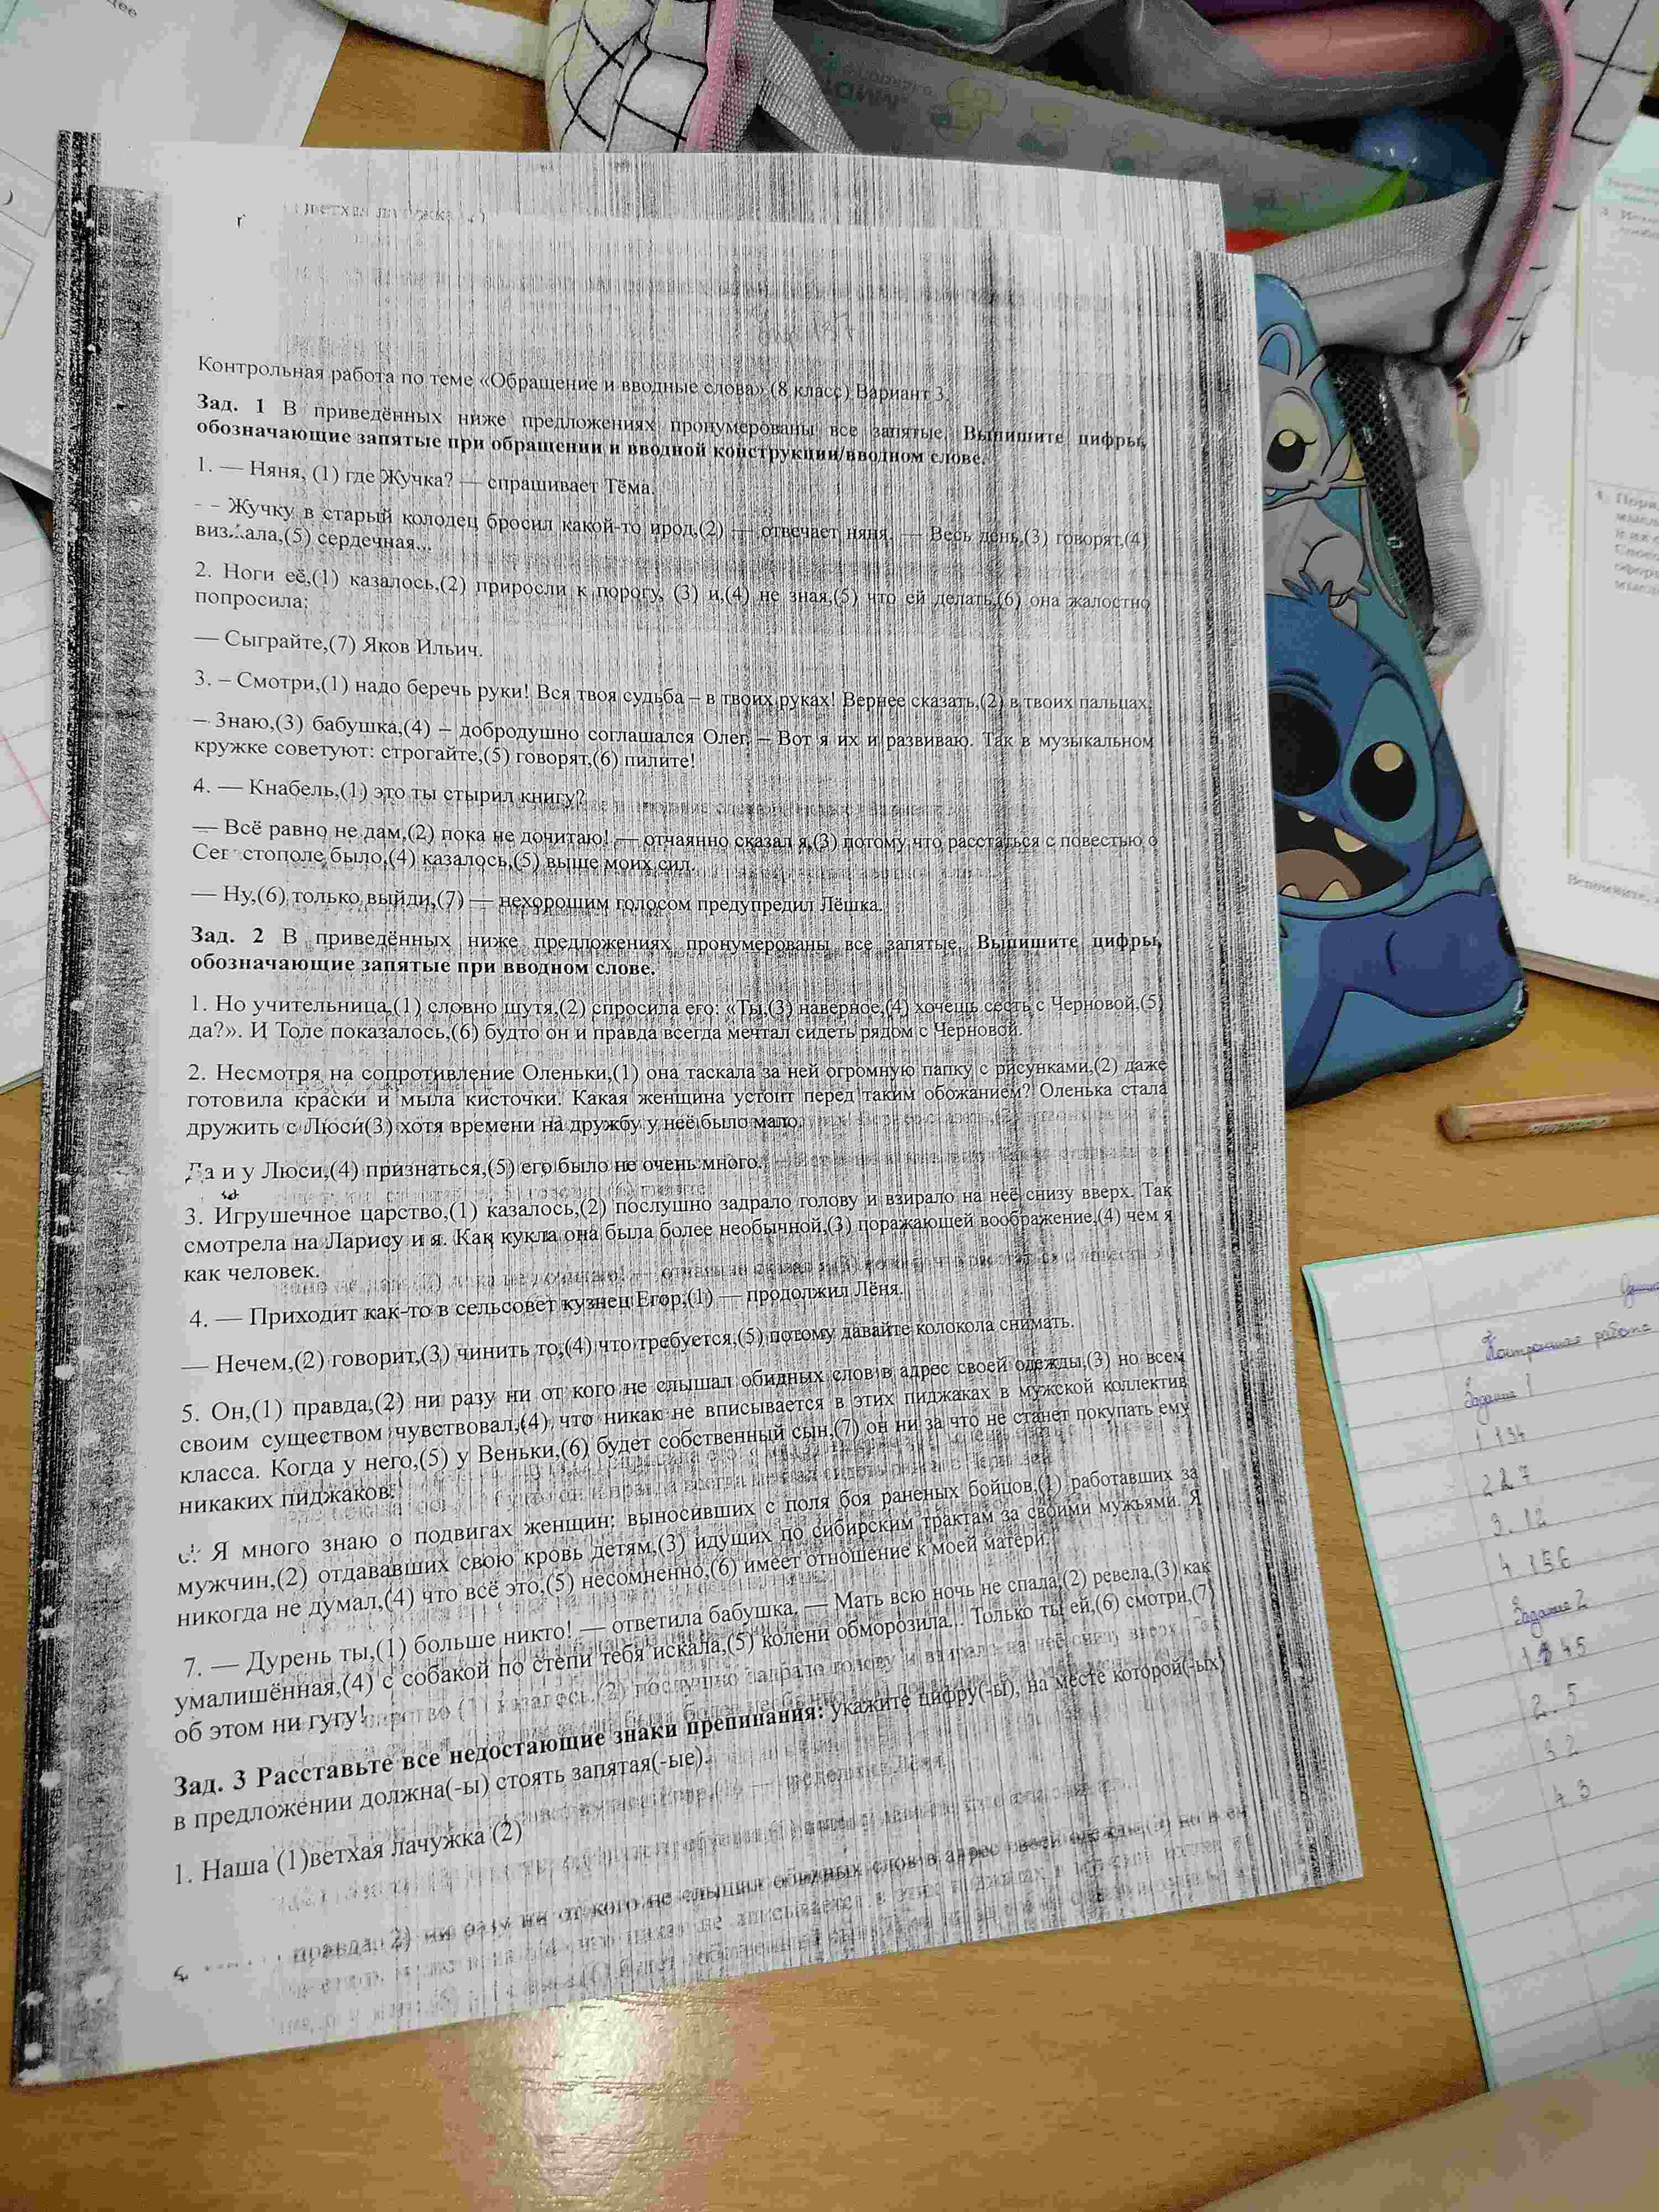 Контрольная работа по теме «Обращение и вводные слова» (8 класс) Вариант 3.
Зад. 1 В приведённых ниже предложениях пронумерованы все запятые. Выпишите цифры,
обозначающие запятые при обращении и вводной конструкции/вводном слове.
1. — Няня, (1) где Жучка? — спрашивает Тёма.
- - Жучку в старый колодец бросил какой-то ирод,(2) — отвечает няня. — Весь день,(3) говорят,(4)
сердечная...
2. Ноги её,(1) казалось,(2) приросли к порогу, (3) и,(4) не зная,(5) что ей делать,(6) она жалостно
попросила:
— Сыграйте,(7) Яков Ильич.
3. – Смотри,(1) надо беречь руки! Вся твоя судьба – в твоих руках! Вернее сказать,(2) в твоих пальцах.
– Знаю,(3) бабушка,(4) – добродушно соглашался Олег. – Вот я их и развиваю. Так в музыкальном
кружке советуют: строгайте,(5) говорят,(6) пилите!
4. — Кнабель,(1) это ты стырил книгу?
— Всё равно не дам,(2) пока не дочитаю! — отчаянно сказал я,(3) потому что расстаться с повестью о
было,(4) казалось,(5) выше моих сил.
— Ну,(6) только выйди,(7) — нехорошим голосом предупредил Лёшка.
Зад. 2 В приведённых ниже предложениях пронумерованы все запятые. Выпишите цифры,
обозначающие запятые при вводном слове.
1. Но учительница,(1) словно шутя,(2) спросила его: «Ты,(3) наверное,(4) хочешь сесть с Черновой,(5)
да?». И Толе показалось,(6) будто он и правда всегда мечтал сидеть рядом с Черновой.
2. Несмотря на сопротивление Оленьки,(1) она таскала за ней огромную папку с рисунками,(2) даже
готовила краски и мыла кисточки. Какая женщина устоит перед таким обожанием? Оленька стала
дружить с Люсей(3) хотя времени на дружбу у неё было мало.
Да и у Люси,(4) признаться,(5) его было не очень много.
3. Игрушечное царство,(1) казалось,(2) послушно задрало голову и взирало на неё снизу вверх. Так
смотрела на Ларису и я. Как кукла она была более необычной,(3) поражающей воображение,(4) чем я
как человек.
4. — Приходит как-то в сельсовет кузнец Егор,(1) — продолжил Лёня.
— Нечем,(2) говорит,(3) чинить то,(4) что требуется,(5) потому давайте колокола снимать.
5. Он,(1) правда,(2) ни разу ни от кого не слышал обидных слов в адрес своей одежды,(3) но всем
своим существом чувствовал,(4) что никак не вписывается в этих пиджаках в мужской коллектив
класса. Когда у него,(5) у Веньки,(6) будет собственный сын,(7) он ни за что не станет покупать ему
никаких пиджаков.
Я много знаю о подвигах женщин: выносивших с поля боя раненых бойцов,(1) работавших за
мужчин,(2) отдававших свою кровь детям,(3) идущих по сибирским трактам за своими мужьями. Я
никогда не думал,(4) что всё это,(5) несомненно,(6) имеет отношение к моей матери.
7. — Дурень ты,(1) больше никто! — ответила бабушка. — Мать всю ночь не спала,(2) ревела,(3) как
умалишённая,(4) с собакой по степи тебя искала,(5) колени обморозила... Только ты ей,(6) смотри,(7)
об этом ни гугу!
Зад. 3 Расставьте все недостающие знаки препинания: укажите цифру(-ы), на месте которой(-ых)
в предложении должна(-ы) стоять запятая(-ые).
1. Наша (1)ветхая лачужка (2)
правда 2) ни разу ни от кого не слышал обидных слов в адрес своей одежды,(3) но всем
Контрольная работа
Задание 1
1 134
2 2 7
3. 12
4 156
Задание 2
45
2. 5
3 2
4 3